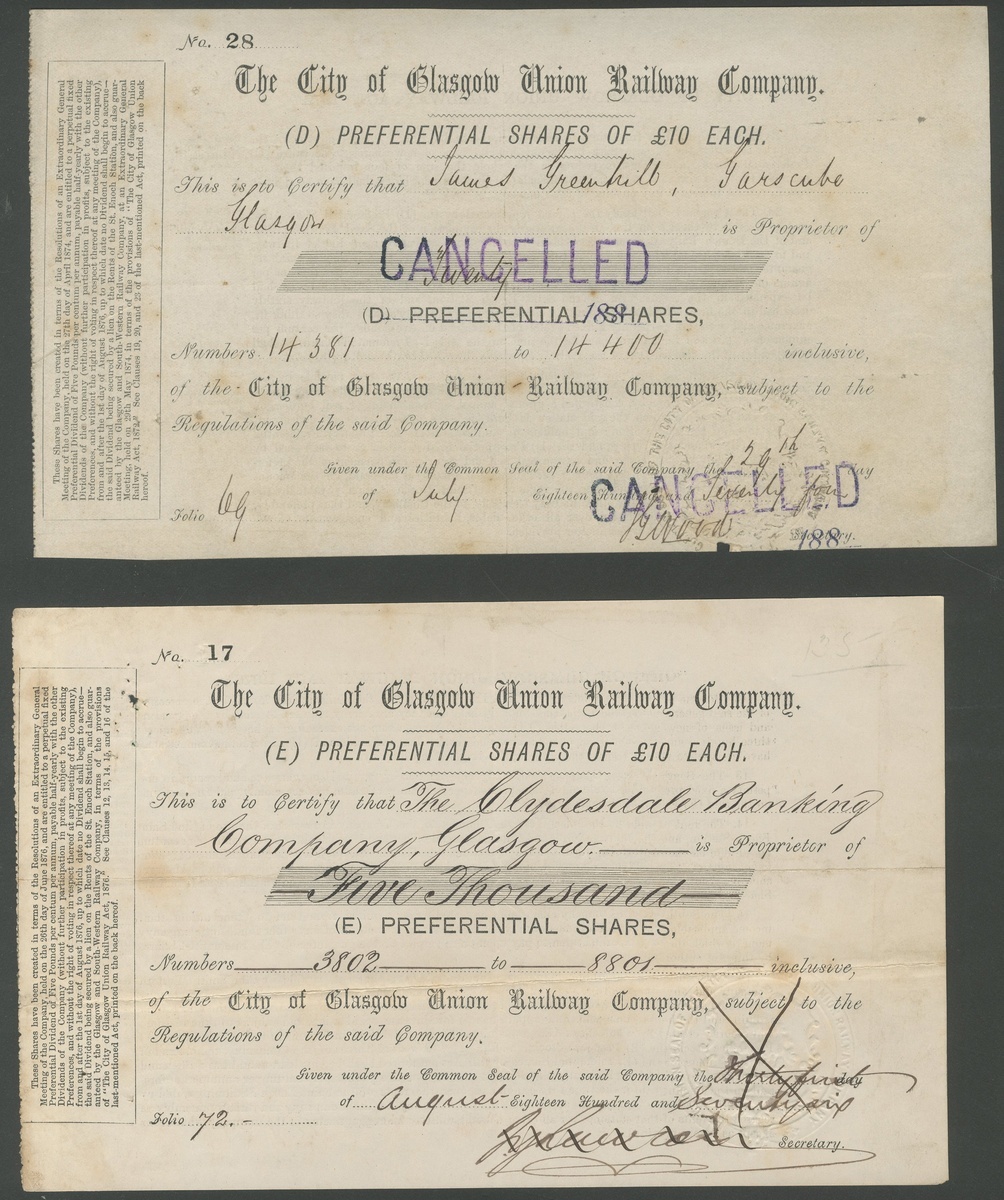 No. 28
The City of Glasgow Union Railway Company.
(D) PREFERENTIAL SHARES OF £10 EACH.
This is to Certify that James Greenhill, Garscube
Glasgow is Proprietor of
CANCELLED
Twenty
188
(D) PREFERENTIAL SHARES,
Numbers 14381 to 14400 inclusive,
of the City of Glasgow Union Railway Company, subject to the
Regulations of the said Company.
Given under the Common Seal of the said Company the 29th day
CANCELLED
of July Eighteen Hundred and Seventy four
Folio 69
Wood Secretary.
188
These Shares have been created in terms of the Resolutions of an Extraordinary General
Meeting of the Company, held on the 27th day of April 1874, and are entitled to a perpetual fixed
Preferential Dividend of Five Pounds per centum per annum, payable half-yearly with the other
Dividends of the Company (without further participation in profits, subject to the existing
Preferences, and without the right of voting in respect thereof at any meeting of the Company),
from and after the 1st day of August 1876, up to which date no Dividend shall begin to accrue—
the said Dividend being secured by a lien on the Rents of the St. Enoch Station, and also guar-
anteed by the Glasgow and South-Western Railway Company, at an Extraordinary General
Meeting, held on 29th May, 1874, in terms of the provisions of "The City of Glasgow Union
Railway Act, 1872." See Clauses 19, 20, and 23 of the last-mentioned Act, printed on the back
hereof.
No. 17
The City of Glasgow Union Railway Company.
(E) PREFERENTIAL SHARES OF £10 EACH.
This is to Certify that The Clydesdale Banking
Company, Glasgow. is Proprietor of
Five Thousand
(E) PREFERENTIAL SHARES,
Numbers 3802 to 8801 inclusive,
of the City of Glasgow Union Railway Company, subject to the
Regulations of the said Company.
Given under the Common Seal of the said Company the Thirty first day
of August Eighteen Hundred and Seventy six
Folio 72.-
Secretary.
These Shares have been created in terms of the Resolutions of an Extraordinary General
Meeting of the Company, held on the 26th day of June 1876, and are entitled to a perpetual fixed
Preferential Dividend of Five Pounds per centum per annum, payable half-yearly with the other
Dividends of the Company (without further participation in profits, subject to the existing
Preferences, and without the right of voting in respect thereof at any meeting of the Company),
from and after the 1st day of August 1876, up to which date no Dividend shall begin to accrue—
the said Dividend being secured by a lien on the Rents of the St. Enoch Station, and also guar-
anteed by the Glasgow and South-Western Railway Company, in terms of the provisions
of "The City of Glasgow Union Railway Act, 1876." See Clauses 12, 13, 14, 15, and 16 of the
last-mentioned Act, printed on the back hereof.